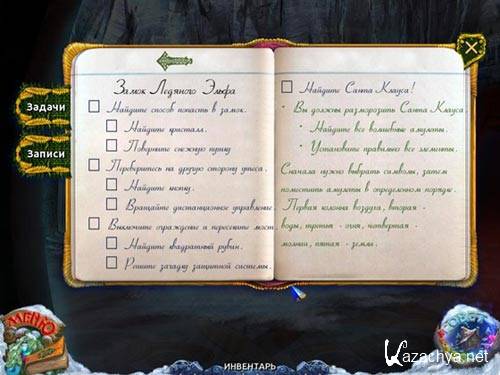 Задачи
Записи
Замок Ледяного Эльфа
Найдите способ попасть в замок.
Найдите кристалл.
Поверните снежную пушку
Переберитесь на другую сторону утеса.
Найдите кнопку.
Вращайте дистанционное управление.
Выключите ограждение и пересеките мост.
Найдите квадратный рубин.
Решите загадку защитной системы.
Найдите Санта Клауса!
Вы должны разморозить Санта Клауса.
Найдите все волшебные амулеты.
Установите правильно все элементы.
Сначала нужно выбрать символы, затем
поместить амулеты в определенном порядке.
Первая колонна воздуха, вторая -
воды, третья - огня, четвертая -
молнии, пятая - земли.
МЕНЮ
СОВЕТ
ИНВЕНТАРЬ
Kazachya.net